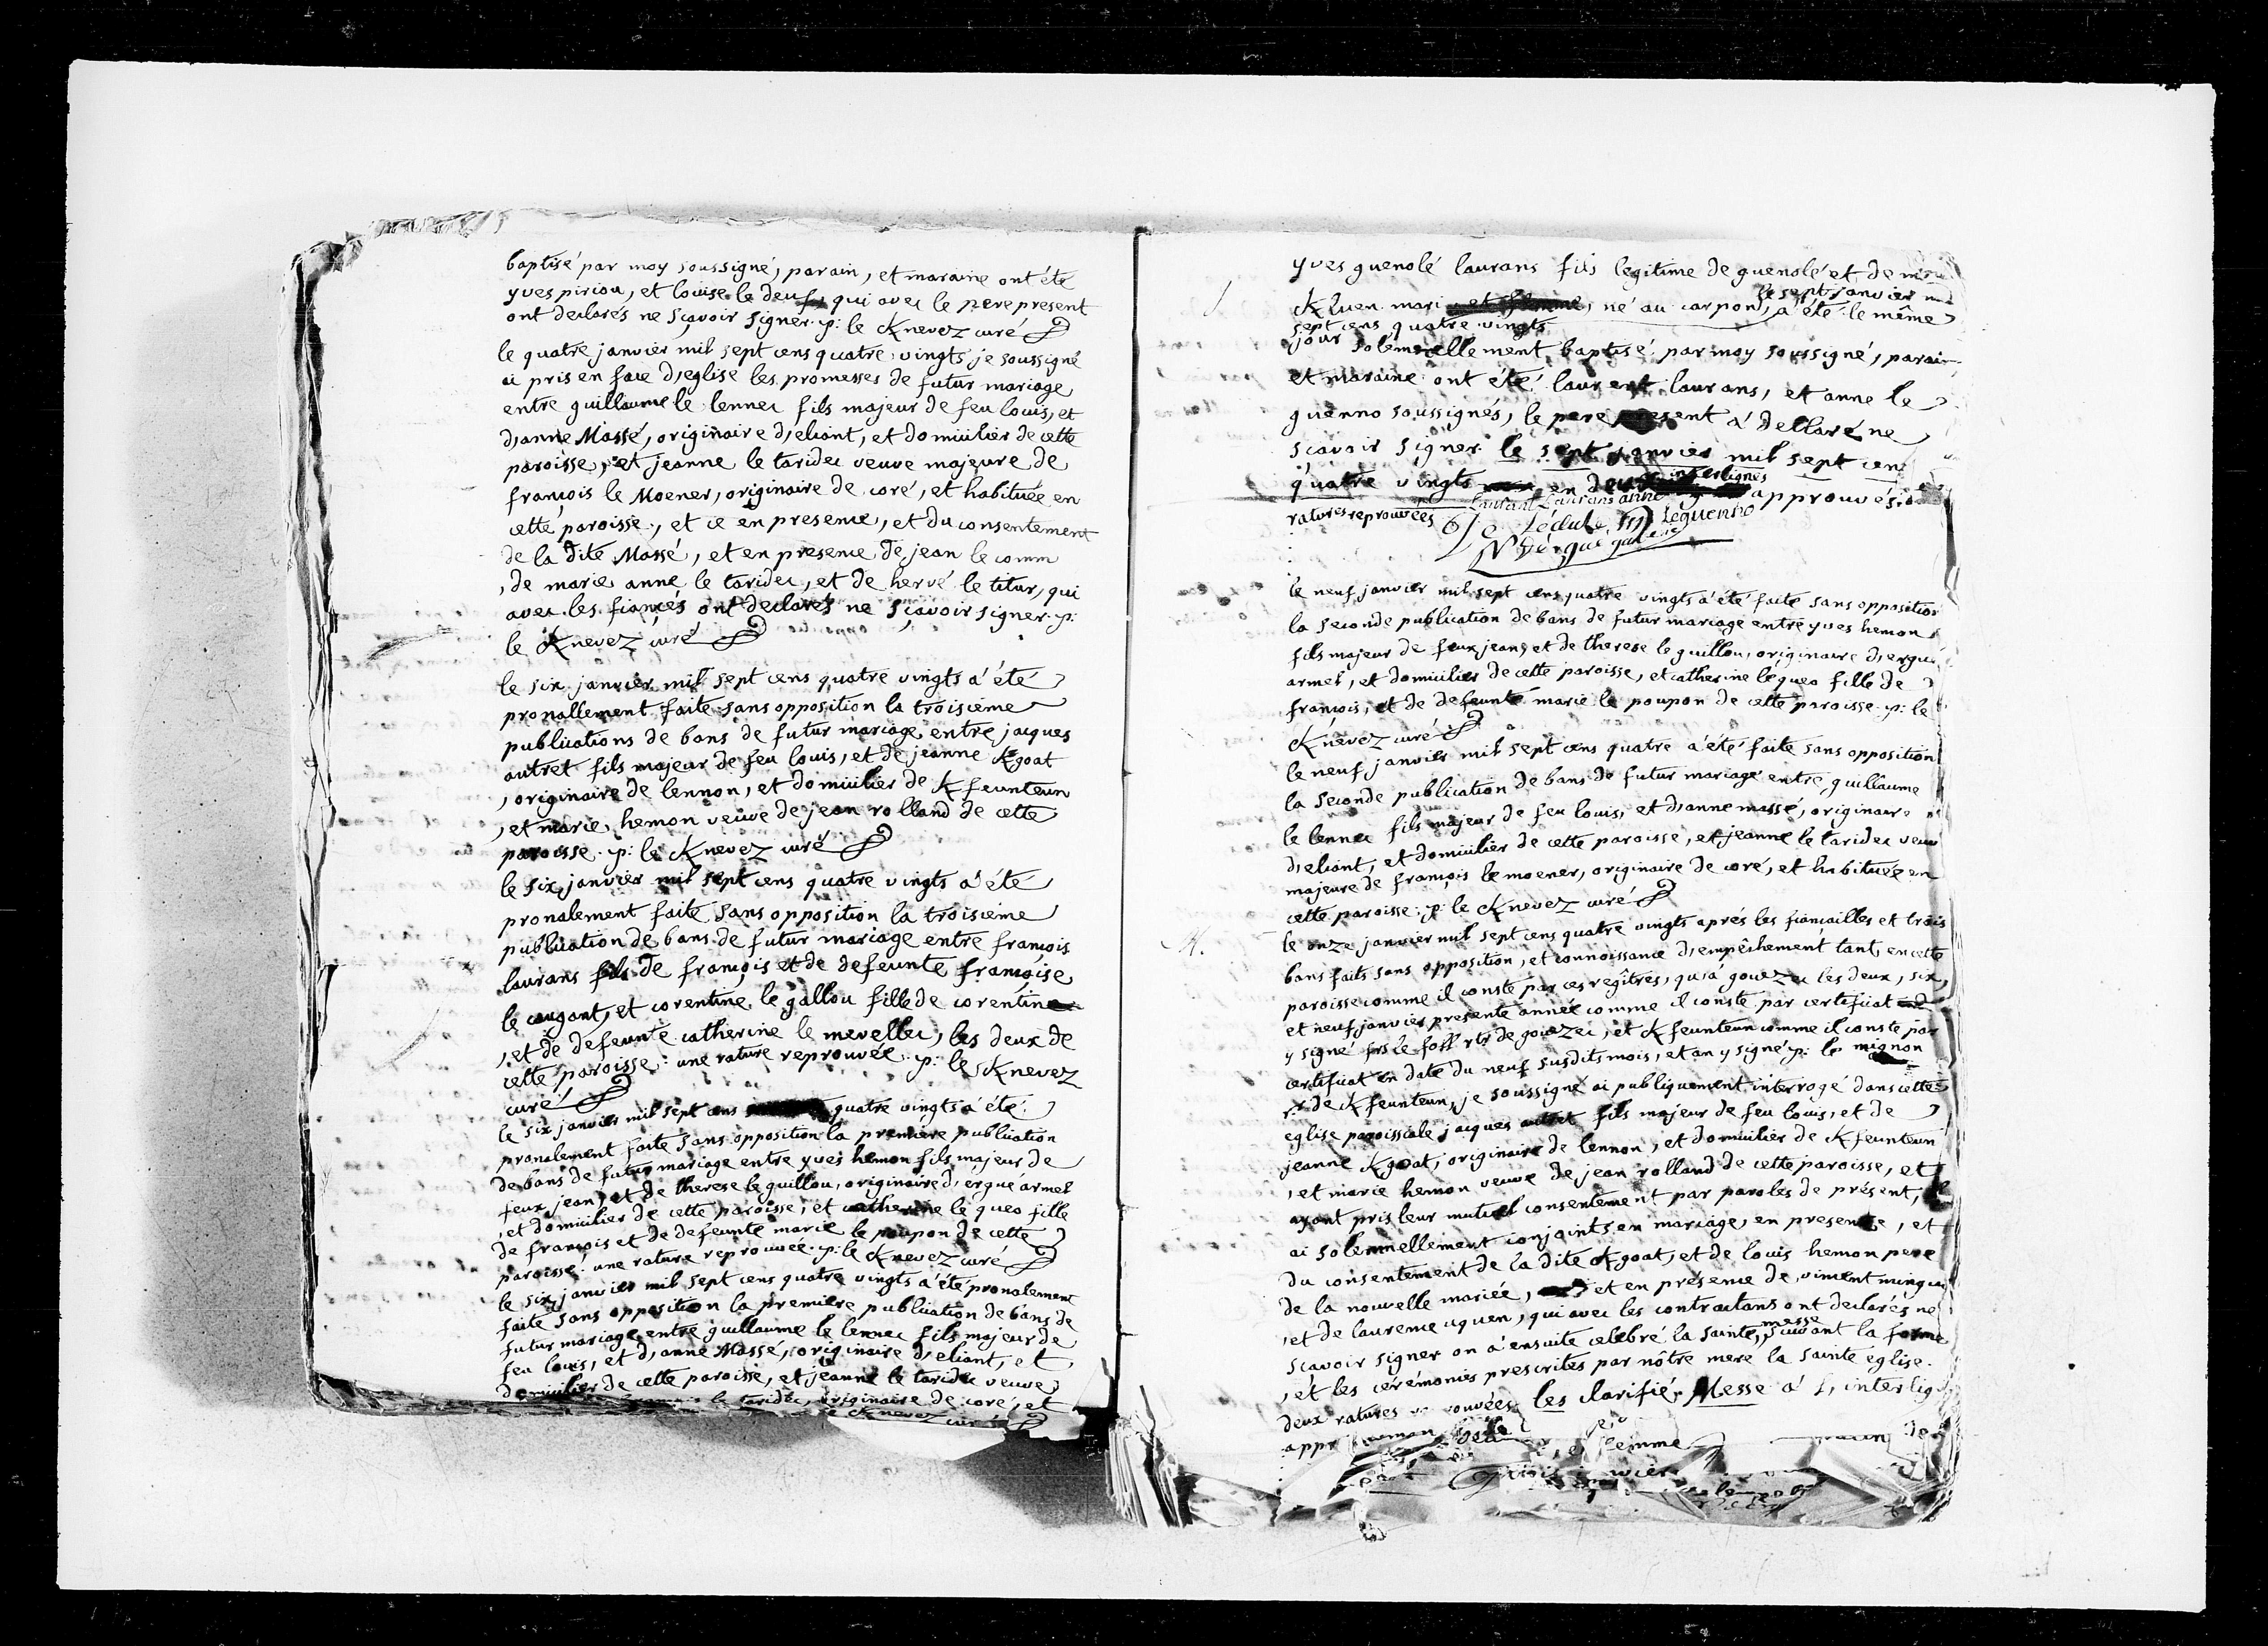 baptisé par moy soussigné, parain, et maraine ont été
yves piriou, et louise le deuf qui avec le pere present
ont declarés ne sçavoir signer. p: le Knevez curé
le quatre janvier mil sept cens quatre vingts je soussigné
ai pris en face d,eglise les promesses de futur mariage
entre guillaume le lennec fils majeur de feu louis, et
d,anne Massé, originaire d,eliant, et domicilier de cette
paroisse, et jeanne le taridec veuve majeure de
françois le Moener, originaire de coré, et habituée en
cette paroisse, et ce en presence, et du consentement
de la dite Massé, et en presence de jean le comm
, de marie anne le taridec, et de hervé le titur, qui
avec les fiancés ont declarés ne sçavoir signer. p:
le Knevez curé
le six janvier mil sept cens quatre vingts a été
pronallement faite sans opposition la troisieme
publications de bans de futur mariage entre jacques
autret fils majeur de feu louis, et de jeanne Kgoat
, originaire de lennon, et domicilier de Kfeunteun
, et marie hemon veuve de jean rolland de cette
paroisse. p: le Knevez curé
le six janvier mil sept cens quatre vingts a été
pronalement faite sans opposition la troisieme
publication de bans de futur mariage entre françois
laurans fils de françois et de defeunte françoise
le caugant, et corentine le gallou fille de corentin
, et de defeunte catherine le mevellec, les deux de
cette paroisse: une rature reprouvée. p: le Knevez
curé
le six janvier mil sept cens quatre vingts a été
pronalement faite sans opposition la premiere publication
de bans de futur mariage entre yves hemon fils majeur de
feux jean, et de therese le guillou, originaire d,ergue armel
, et domicilier de cette paroisse, et catherine le queo fille
de françois et de defeunte marie le poupon de cette
paroisse. une rature reprouvée. p: le Knevez curé
le six janvier mil sept cens quatre vingts a été pronalement
faite sans opposition la premiere publication de bans de
futur mariage entre guillaume le lennec fils majeur de
feu louis, et d,anne Massé, originaire d,eliant, et
domicilier de cette paroisse, et jeanne le taridec veuve
le taridec, originaire de coré, et
le Knevez curé
yves guenolé laurans fils legitime de guenolé et de
le sept janvier mil
Kluen mari né au carpond, a été le même
sept cens quatre vingts
jour solemnellement baptisé par moy soussigné, parain
et maraine ont été laurent laurans, et anne le
guenno soussignés, le pere present a dellaré ne
sçavoir signer. le sept janvier mil sept cens
interlignes
quatre vingts en deux approuvés
ratures reprouvées Laurant Laurans anne Leguenno
le neuf janvier mil sept cens quatre vingts a été faite sans opposition
la seconde publication de bans de futur mariage entre yves hemon
fils majeur de feux jean, et de therese le guillou, originaire d,ergue
armel, et domicilier de cette paroisse, et catherine le queo fille de
françois, et de defeunte marie le poupon de cette paroisse. p: le
Knevez curé
le neuf janvier mil sept cens quatre a été faite sans opposition
la seconde publication de bans de futur mariage entre guillaume
le lennec fils majeur de feu louis, et d,anne massé, originaire
d,eliant, et domicilier de cette paroisse, et jeanne le taridec veuve
majeure de françois le moener, originaire de coré, et habituée en
cette paroisse. p: le Knevez curé
M. le onze janvier mil sept cens quatre vingts aprés les fiancailles et trois
bans faits sans opposition, et connoissance d,empêchement tant en cette
paroisse comme il conste par ces regîtres, qu,a gouezec les deux, six,
et neuf janvier presente année comme il conste par certificat
y signé frs le foll rtr de gouezec, et Kfeunteun comme il conste par
certificat en date du neuf susdits mois, et an y signé p: le mignon
rtr de Kfeunteun, je soussigné ai publiquement interrogé dans cette
eglise paroissiale jacques autret fils majeur de feu louis, et de
jeanne Kgoat, originaire de lennon, et domicilier de Kfeunteun
, et marie hemon veuve de jean rolland de cette paroisse, et
ayant pris leur mutuel consentement par paroles de présent, je
ai solemnellement conjoints en mariage, en presence, et
du consentement de la dite Kgoat, et de louis hemon pere
de la nouvelle mariée, et en présence de vincent
, et de laurence uguen, qui avec les contractans ont declarés ne
messe
sçavoir signer on a ensuite celebré la sainte, suivant la forme
, et les cérémonies prescrites par nôtre mere la sainte eglise.
deux ratures les clarifié, Messe a l, interlig
appr
femme
janvier